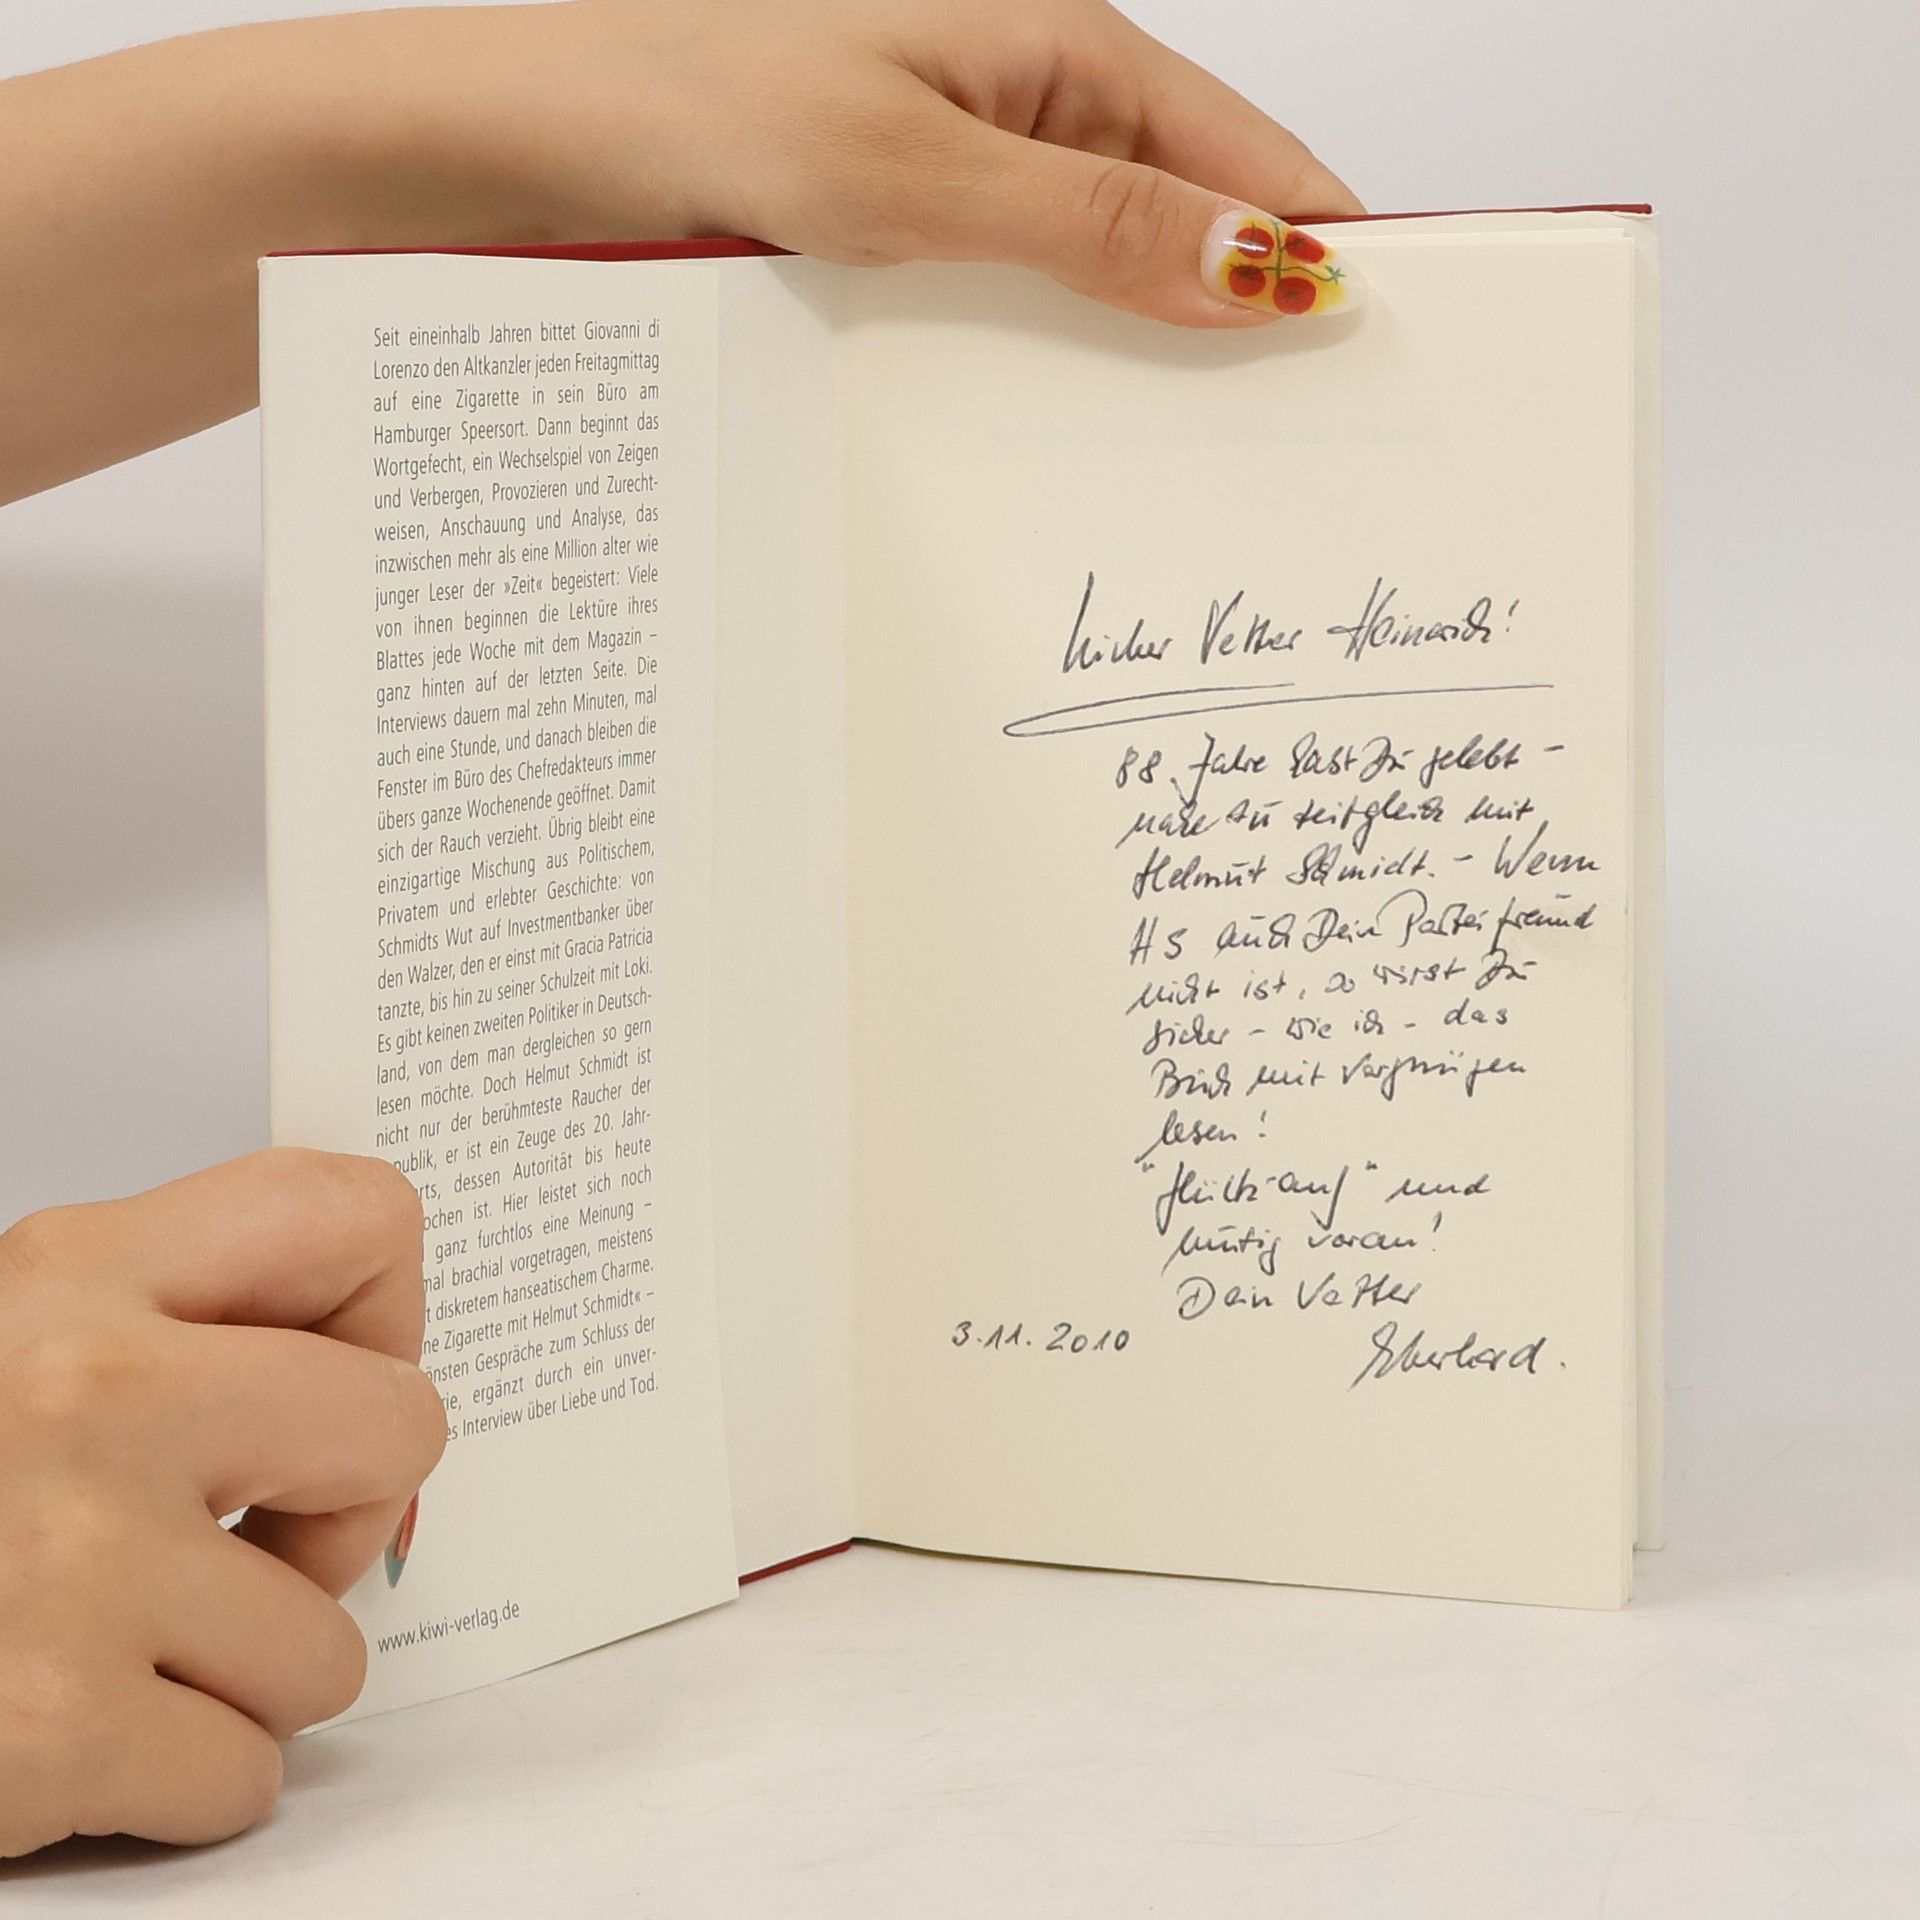 Seit eineinhalb Jahren bittet Giovanni di
Lorenzo den Altkanzler jeden Freitagmittag
auf eine Zigarette in sein Büro am
Hamburger Speersort. Dann beginnt das
Wortgefecht, ein Wechselspiel von Zeigen
und Verbergen, Provozieren und Zurecht-
weisen, Anschauung und Analyse, das
inzwischen mehr als eine Million alter wie
junger Leser der »Zeit« begeistert: Viele
von ihnen beginnen die Lektüre ihres
Blattes jede Woche mit dem Magazin –
ganz hinten auf der letzten Seite. Die
Interviews dauern mal zehn Minuten, mal
auch eine Stunde, und danach bleiben die
Fenster im Büro des Chefredakteurs immer
übers ganze Wochenende geöffnet. Damit
sich der Rauch verzieht. Übrig bleibt eine
einzigartige Mischung aus Politischem,
Privatem und erlebter Geschichte: von
Schmidts Wut auf Investmentbanker über
den Walzer, den er einst mit Gracia Patricia
tanzte, bis hin zu seiner Schulzeit mit Loki.
Es gibt keinen zweiten Politiker in Deutsch-
land, von dem man dergleichen so gern
lesen möchte. Doch Helmut Schmidt ist
nicht nur der berühmteste Raucher der
publik, er ist ein Zeuge des 20. Jahr-
rts, dessen Autorität bis heute
ochen ist. Hier leistet sich noch
ganz furchtlos eine Meinung –
mal brachial vorgetragen, meistens
t diskretem hanseatischem Charme.
ne Zigarette mit Helmut Schmidt« –
önsten Gespräche zum Schluss der
rie, ergänzt durch ein unver-
es Interview über Liebe und Tod.
www.kiwi-verlag.de
Lieber Vetter Heinrich!
88 Jahre hast Du gelebt –
nahezu zeitgleich mit
Helmut Schmidt. – Wenn
HS auch Dein Parteifreund
nicht ist, so wirst Du
sicher – wie ich – das
Buch mit Vergnügen
lesen!
"Glück-auf" und
mutig voran!
Dein Vetter
3.11.2010 Eberhard.